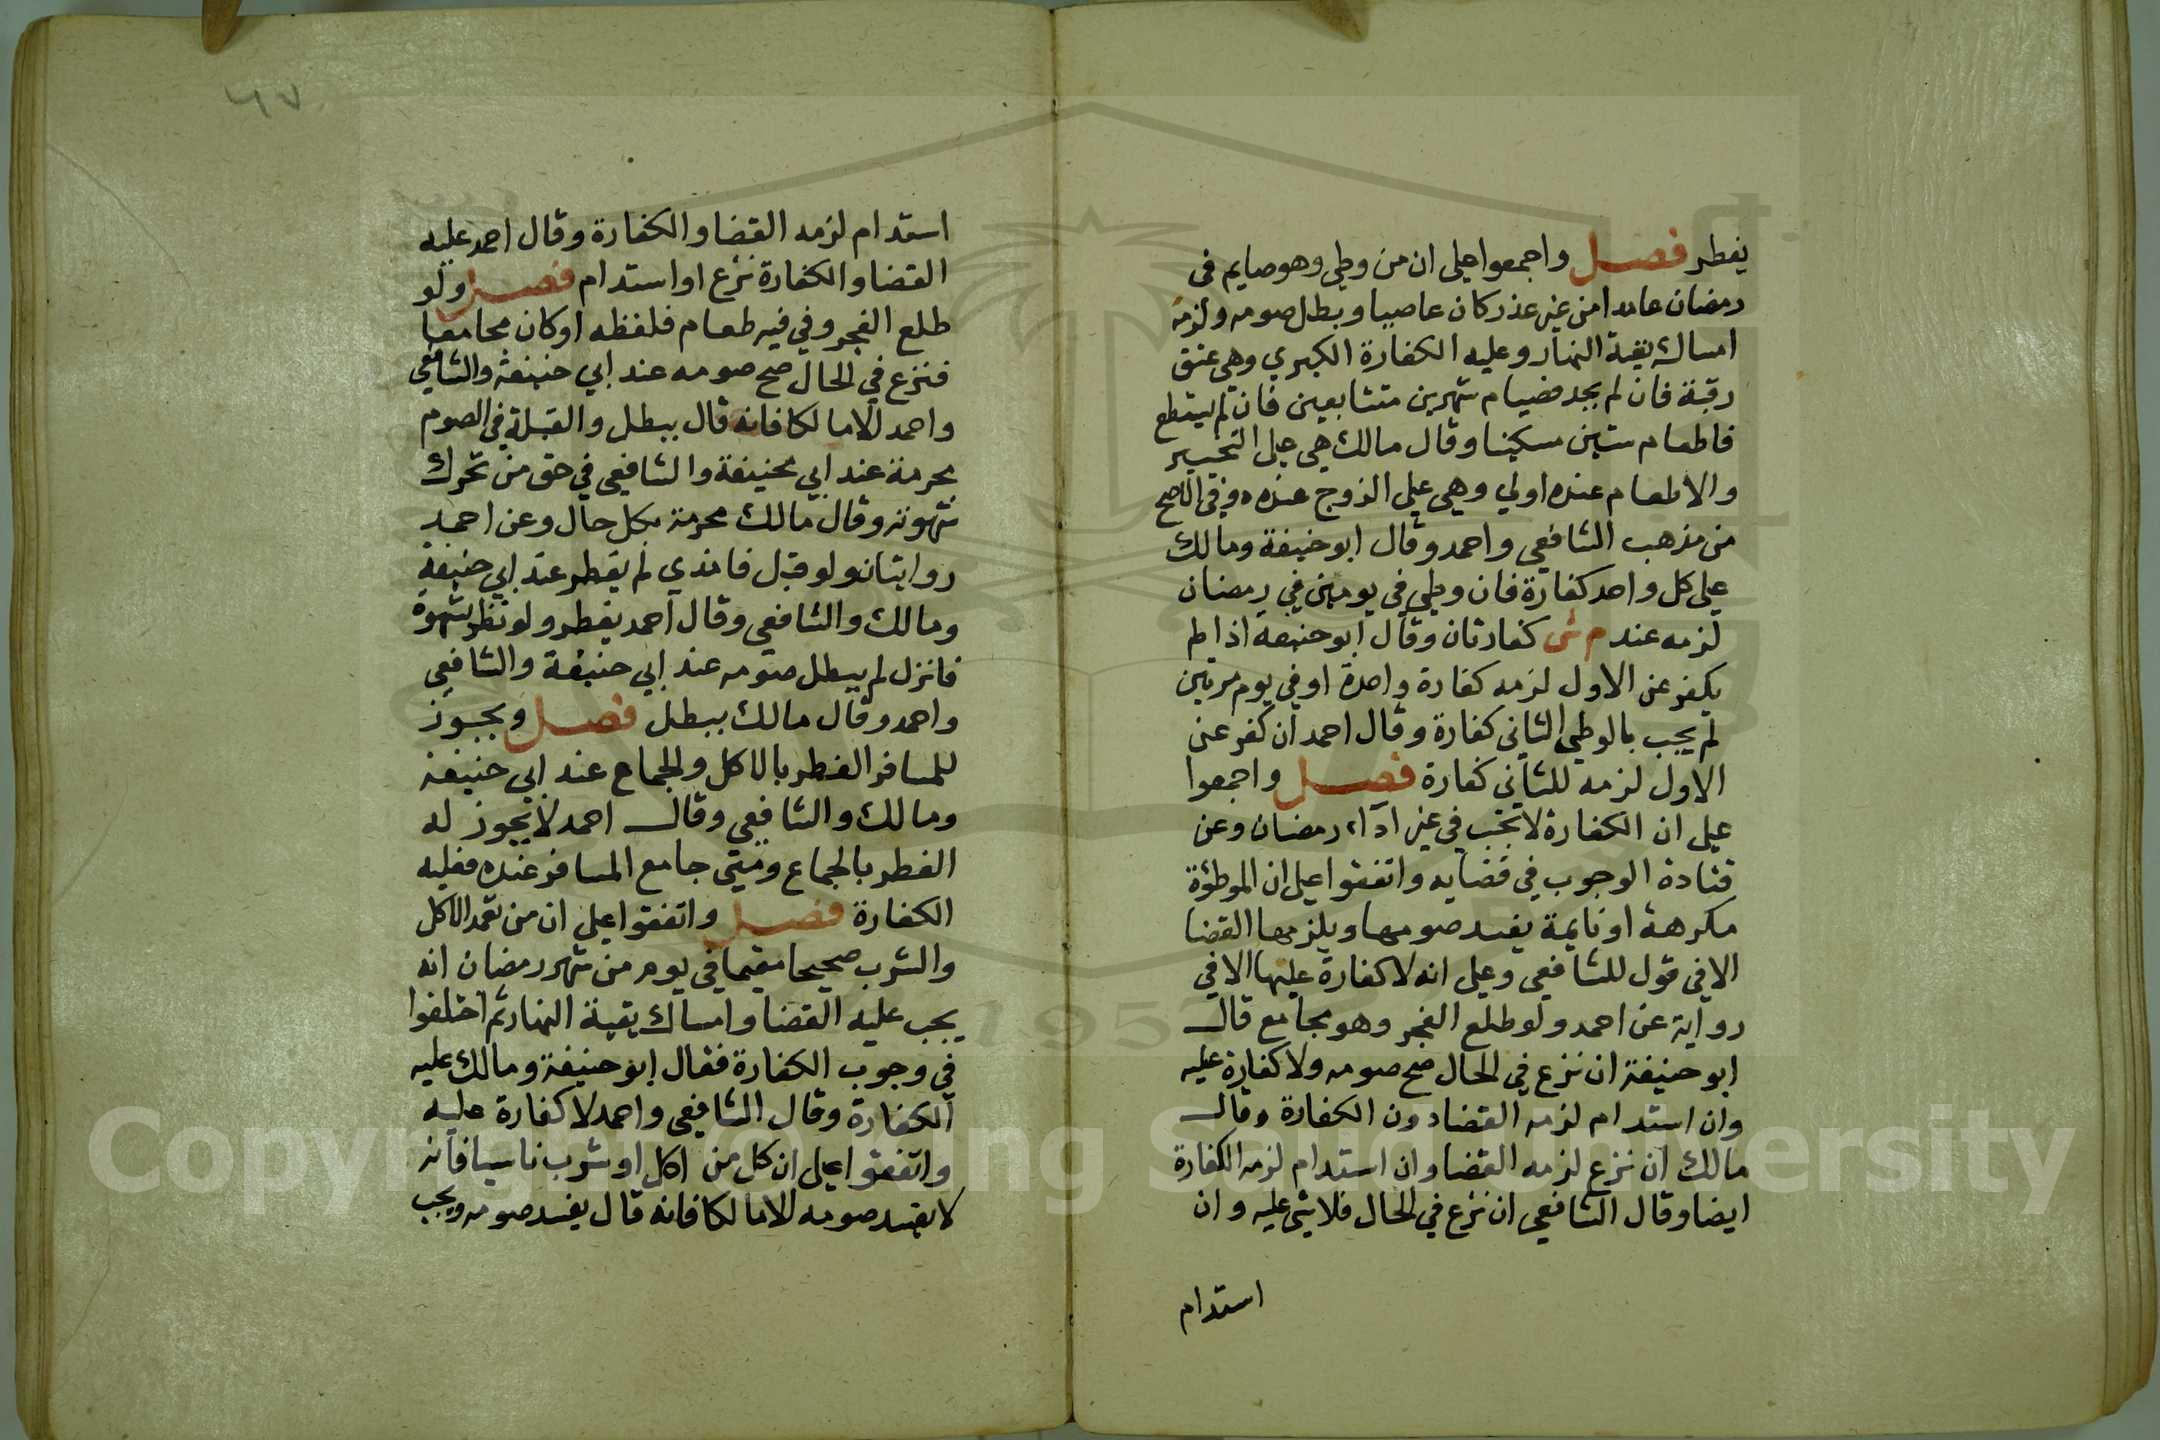 يفطر فصل واجمعوا على ان من وطي وهو صايم في
رمضان عامدا من غير عذر كان عاصيا وبطل صومه ولزمه
امساك بقية النهار وعليه الكفارة الكبري وهي عتق
رقبة فان لم يجد فصيام شهرين متتابعين فان لم يستطع
فاطعام ستين مسكينا وقال مالك هي على التخيير
والاطعام عنده اولي وهي علي الزوج عنده وفي الاصح
من مذهب الشافعي واحمد وقال ابو حنيفة ومالك
علي كل واحد كفارة فان وطي في يومين في رمضان
لزمه عند م ش كفارتان وقال ابو حنيفة اذا لم
يكفر عن الاول لزمه كفارة واحدة او في يوم مرتين
لم يجب بالوطي الثاني كفارة وقال احمد ان كفر عن
الاول لزمه للثاني كفارة فصل واجمعوا
علي ان الكفارة لا تجب في غير اداء رمضان وعن
قتادة الوجوب في قضايه واتفقوا علي ان الموطؤة
مكرهة او نايمة يفسد صومها ويلزمها القضا
الا في قول للشافعي وعلي انه لا كفارة عليها الا في
رواية عن احمد ولو طلع الفجر وهو مجامع قال
ابو حنيفة ان نزع في الحال صح صومه ولا كفارة عليه
وان استدام لزمه القضا دون الكفارة وقال
مالك ان نزع لزمه القضا وان استدام لزمه الكفارة
ايضا وقال الشافعي ان نزع في الحال فلا شي عليه وان
استدام
٦٧
استدام لزمه القضا والكفارة وقال احمد عليه
القضا والكفارة نزع او استدام فصل ولو
طلع الفجر وفي فيه طعام فلفظه او كان مجامعا
فنزع في الحال صح صومه عند ابي حنيفة والشافعي
واحمد الا مالكا فانه قال يبطل والقبلة في الصوم
محرمة عند ابي حنيفة والشافعي في حق من تحرك
شهوته وقال مالك محرمة بكل حال وعن احمد
روايتان ولو قبل فامذي لم يفطر عند ابي حنيفة
ومالك والشافعي وقال احمد يفطر ولو نظر بشهوة
فانزل لم يبطل صومه عند ابي حنيفة والشافعي
واحمد وقال مالك يبطل فصل ويجوز
للمسافر الفطر بالاكل والجماع عند ابي حنيفة
ومالك والشافعي وقال احمد لا يجوز له
الفطر بالجماع ومتي جامع المسافر عنده فعليه
الكفارة فصل واتفقوا علي ان من تعمد الاكل
والشرب صحيحا مقيما في يوم من شهر رمضان انه
يجب عليه القضا وامساك بقية النهار ثم اختلفوا
في وجوب الكفارة فقال ابو حنيفة ومالك عليه
الكفارة وقال الشافعي واحمد لا كفارة عليه
واتفقوا علي ان كل من اكل او شرب ناسيا فانه
لا يفسد صومه الا مالكا فانه قال يفسد صومه ويجب
1957
Copyright © King Saud University